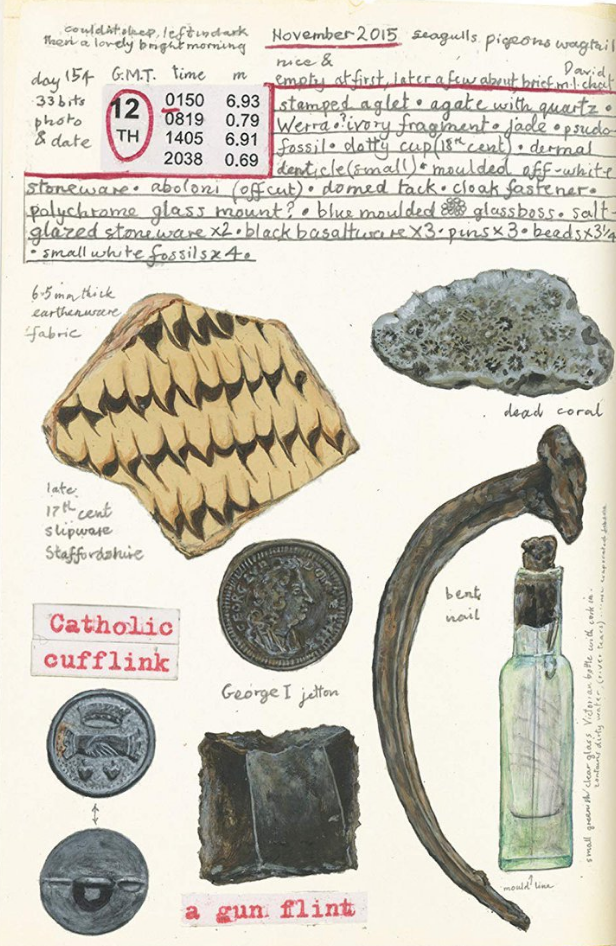 couldn't sleep, left in dark
then a lovely bright morning
November 2015
seagulls, pigeons wagtail
nice &
David
empty at first, later a few about brief m.l. chat
day 154
33 bits
photo
& date
G.M.T. time m
12
TH
0150 6.93
0819 0.79
1405 6.91
2038 0.69
stamped aglet • agate with quartz •
Werra? • ivory fragment • jade • psudo
fossil • dotty cup (18th cent) • dermal
denticle (small) • moulded off-white
stoneware • aboloni (offcut) • domed tack • cloak fastener •
polychrome glass mount? • blue moulded glass boss • salt-
glazed stoneware x2 • black basaltware x3 • pins x3 • beads x3¼
• small white fossils x 4 •
6.5 mm thick
earthenware
fabric
dead coral
late
17th cent
slipware
Staffordshire
bent
nail
Catholic
cufflink
George I jetton
small greenish/clear glass Victorian bottle with cork in.
contains dirty water (river
mould line
a gun flint